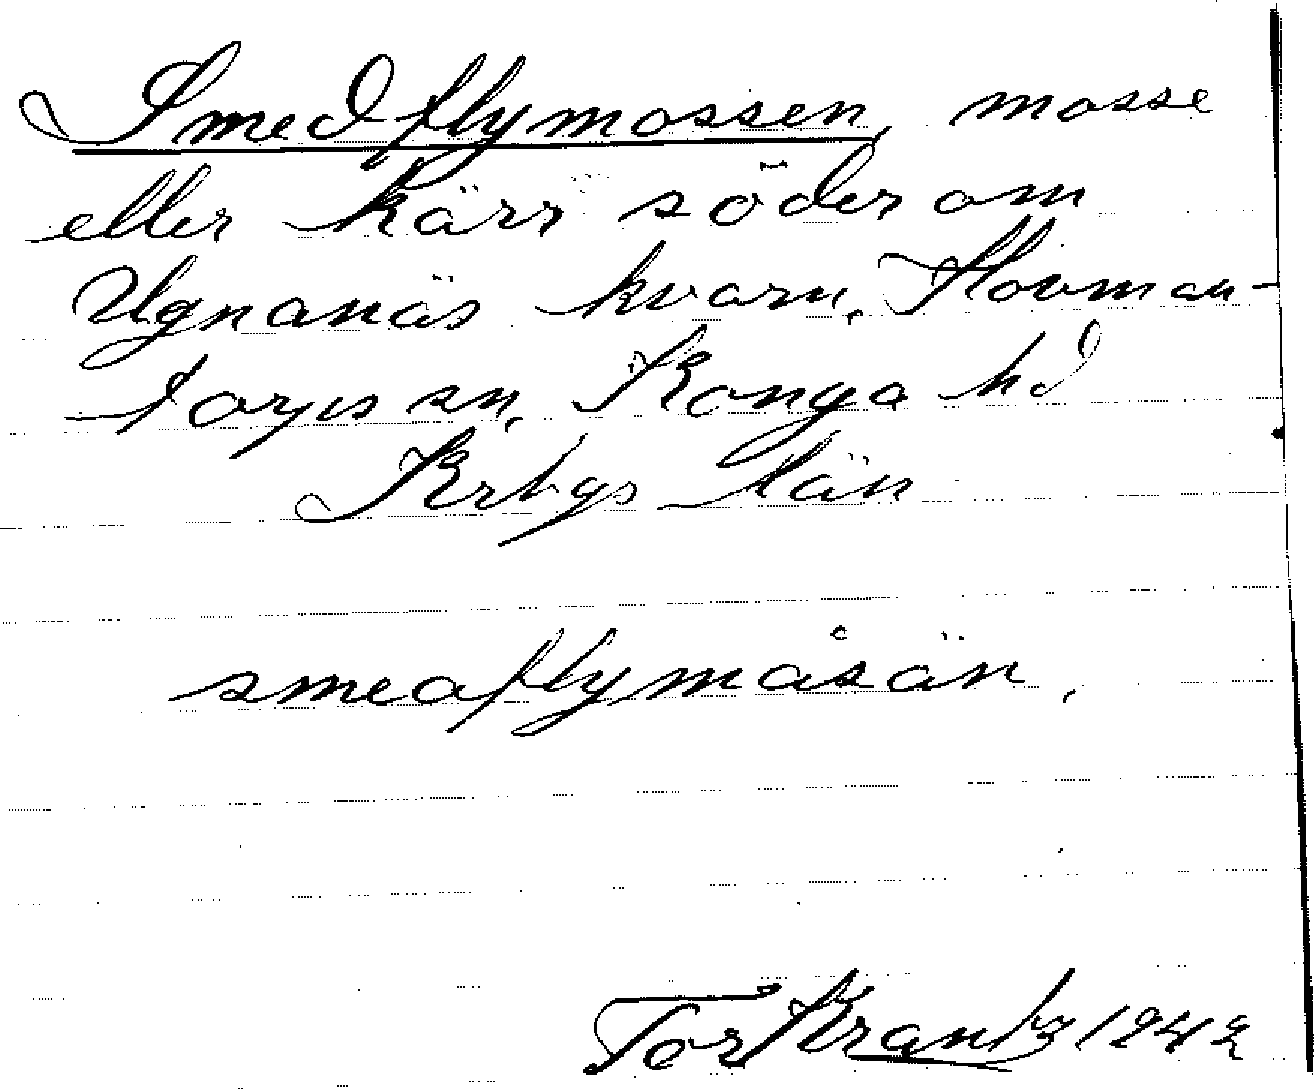 Smedflymossen, mosse
eller kärr söder om
Ugnanäs kvarn, Hovman-
torps sn, Konga hd
Krbgs län
smeaflymåsän.
Tor Krantz 1942